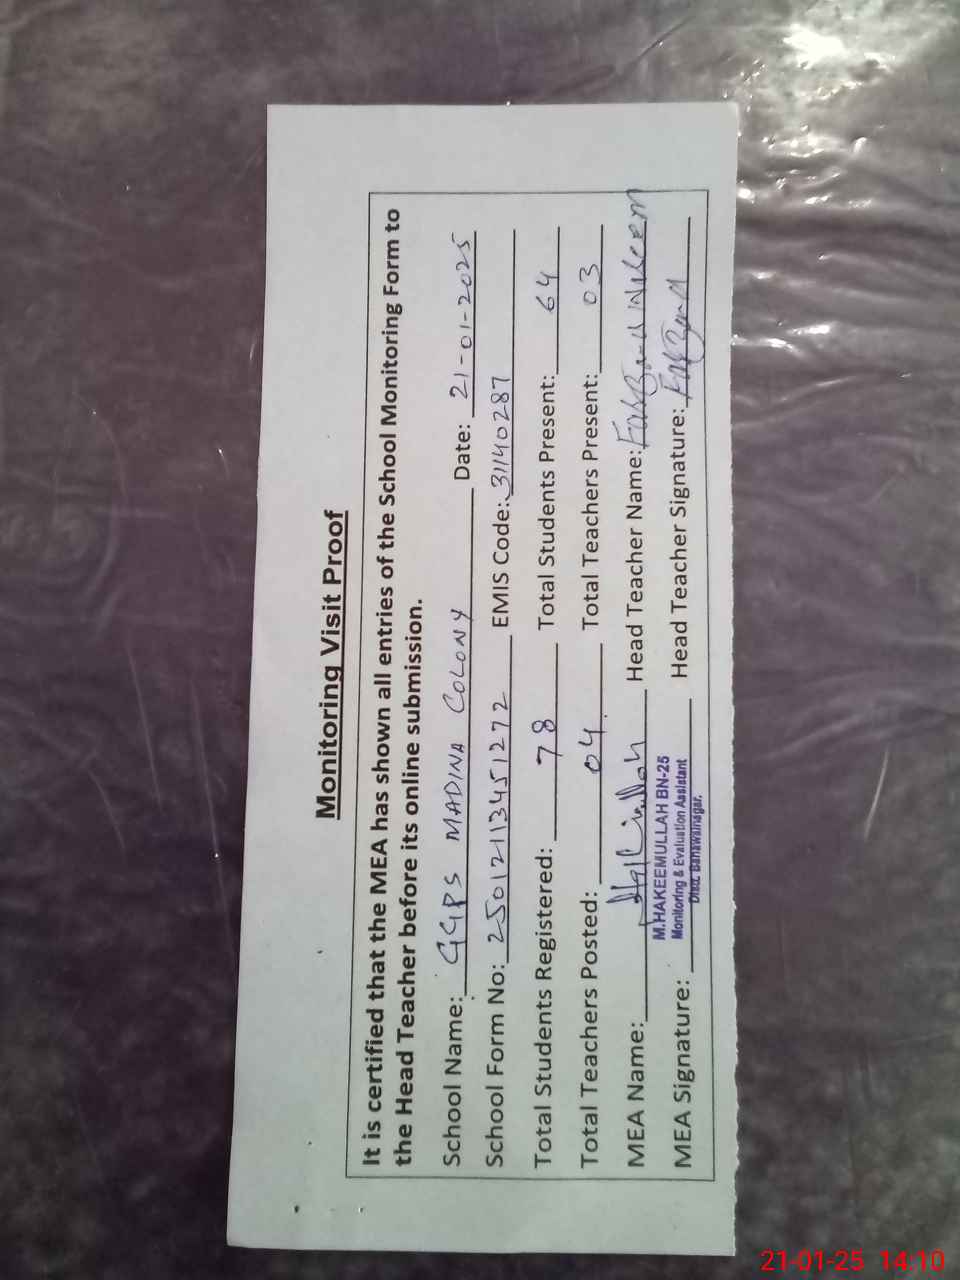 Monitoring Visit Proof
It is certified that the MEA has shown all entries of the School Monitoring Form to
the Head Teacher before its online submission.
School Name: GGPS MADINA COLONY Date: 21-01-2025
School Form No: 250121134451272 EMIS Code: 31140287
Total Students Registered: 78 Total Students Present: 64
Total Teachers Posted: 04 Total Teachers Present: 03
MEA Name: Head Teacher Name:
M.HAKEEMULLAH BN-25
MEA Signature: Monitoring & Evaluation Assistant Head Teacher Signature:
Distt. Bahawalnagar.
21-01-25 14:10